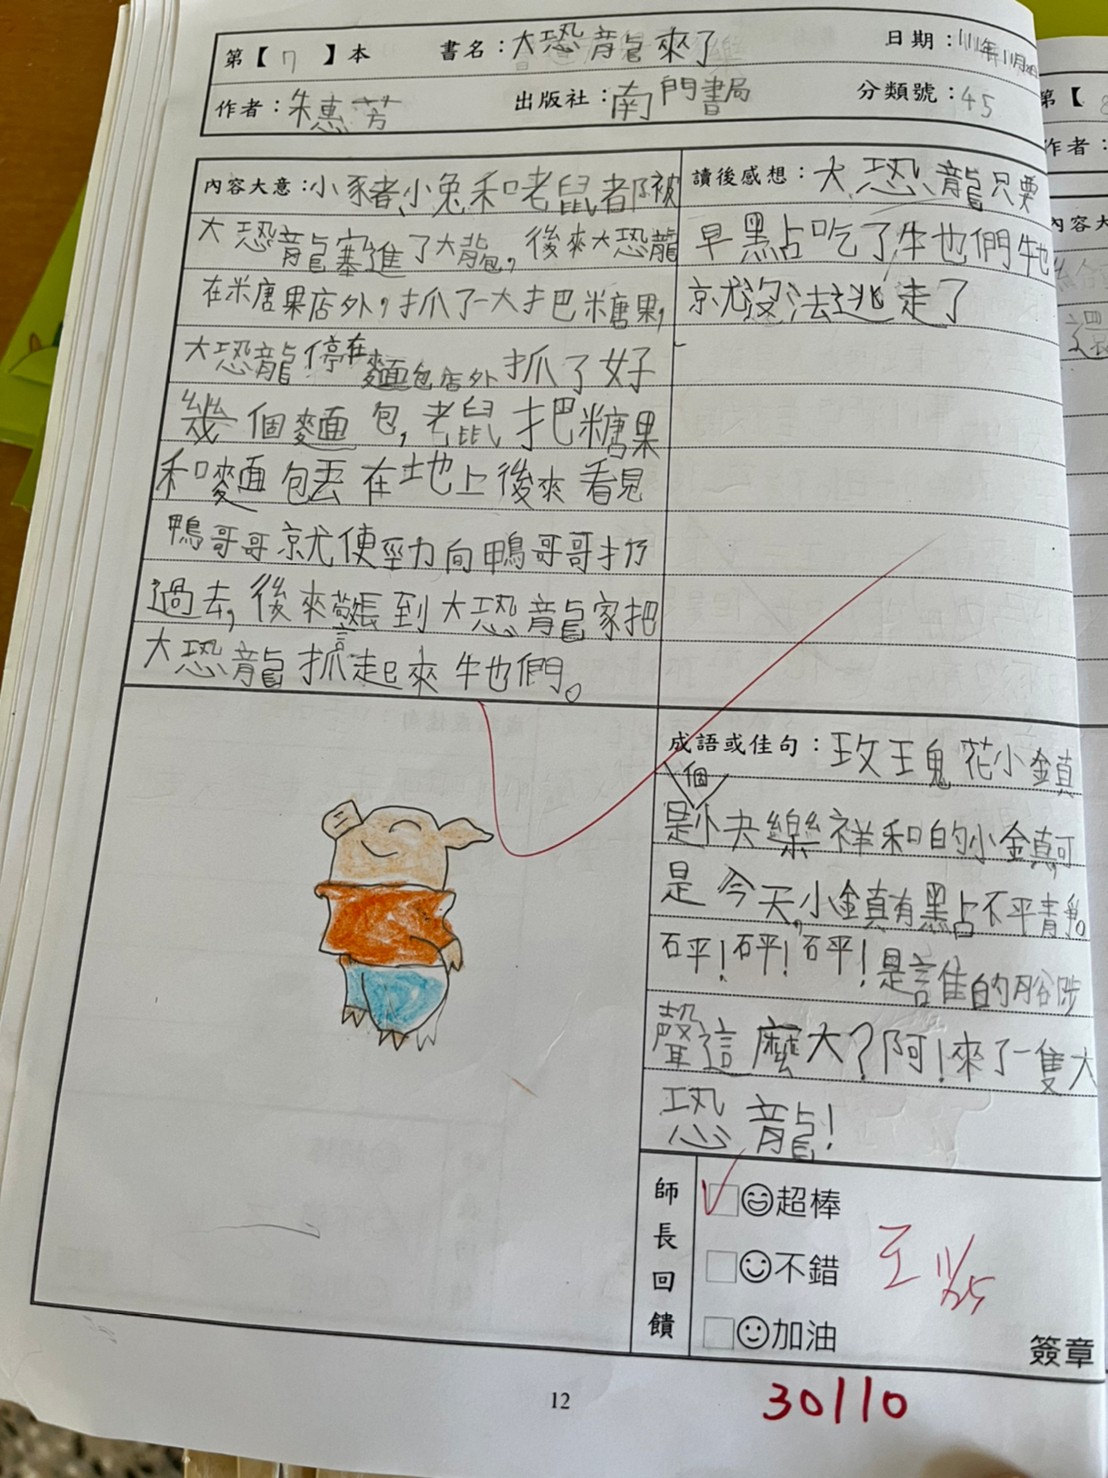 第【 7 】本 書名:大恐龍來了 日期:111年11月
作者:朱惠芳 出版社:南門書局 分類號:45
內容大意:小豬、小兔和老鼠都被
大恐龍塞進了大背包,後來大恐龍
在米唐果店外,抓了一大把糖果,
大恐龍停在麵包店外抓了好
幾個麵包,老鼠把糖果
和麵包丟在地上後來看見
鴨哥哥就使勁向鴨哥哥扔
過去,後來警長到大恐龍家把
大恐龍抓起來牠們。
讀後感想:大恐龍只要
早點吃了牠們牠
就沒法逃走了
成語或佳句:玫瑰花小鎮
是個小快樂祥和的小鎮可
是今天,小鎮有點不平靜。
砰!砰!砰!是誰的腳步
聲這麼大?阿!來了一隻大
恐龍!
師長回饋
超棒
不錯
加油
王 11/25
簽章
12
30110
第【 8
作者:
內容大
還